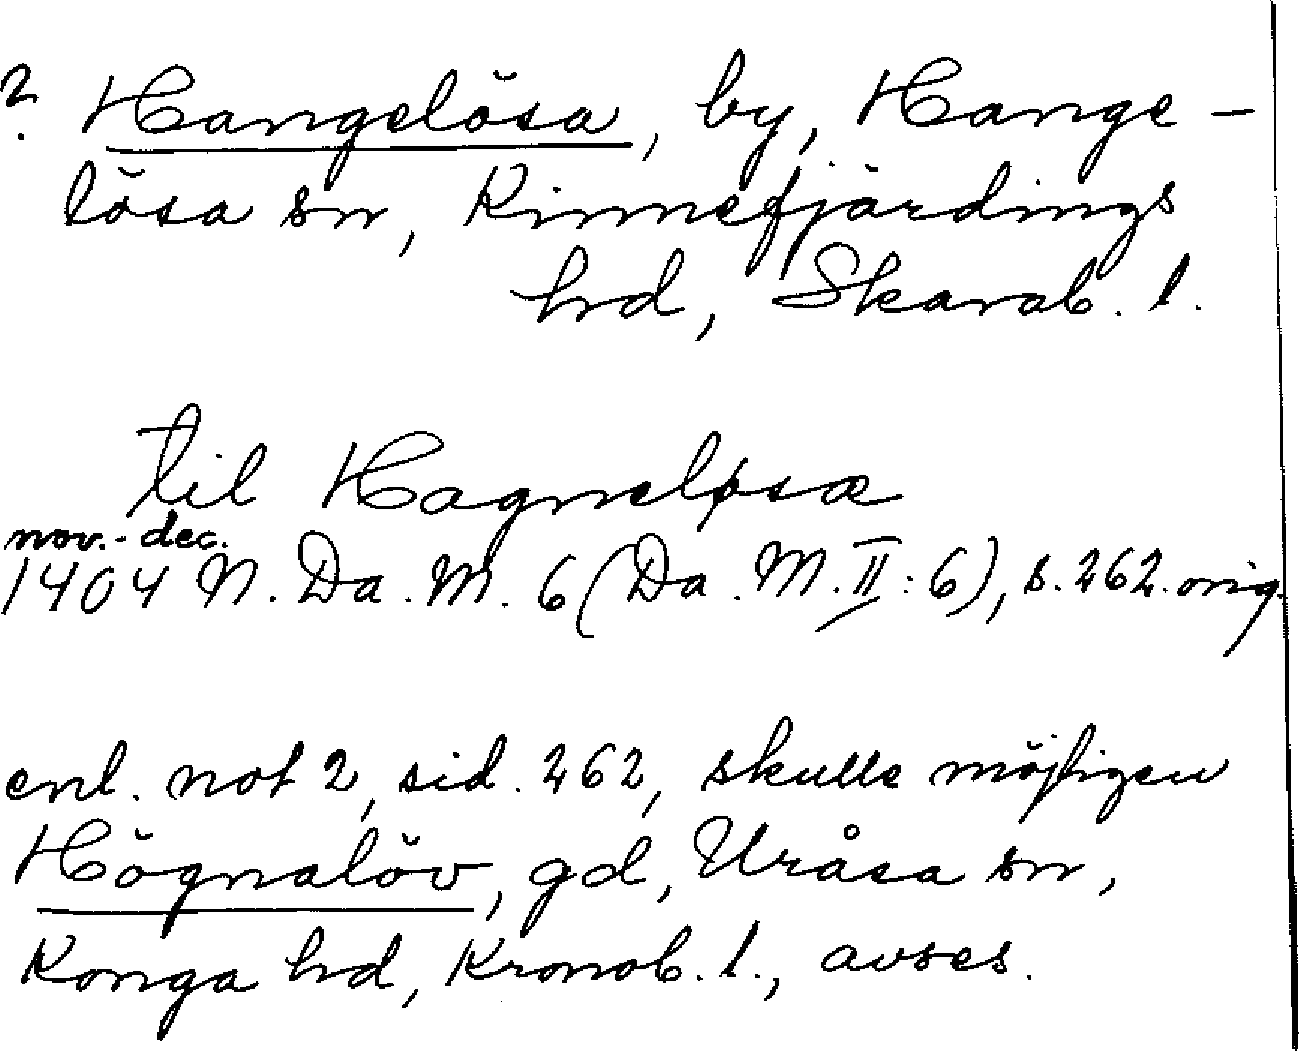 ? Hangelösa, by, Hange-
lösa sn, Kinnefjärdings
hd, Skarab. l.
til Hagneløsæ
nov.-dec.
1404 N. Da. M. 6 (Da. M. II: 6), s. 262. orig.
enl. not 2, sid. 262, skulle möjligen
Högnalöv, gd, Uråsa sn,
Konga hd, Kronob. l., avses.